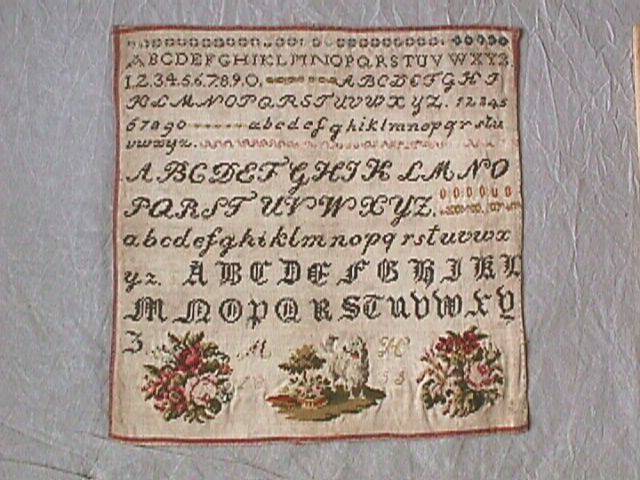 ABCDEFGHIKLMNOPQRSTUVWXYZ.
1.2.3.4.5.6.7.8.9.0. ABCDEFGHI
KLMNOPQRSTUVWXYZ. 12345
67890 abcdefghiklmnopqrstu
vwxyz.
ABCDEFGHIKLMNO
PQRSTUVWXYZ.
abcdefghiklmnopqrstuvwx
yz. ABCDEFGHIKL
MNOPQRSTUVWXY
Z
M H